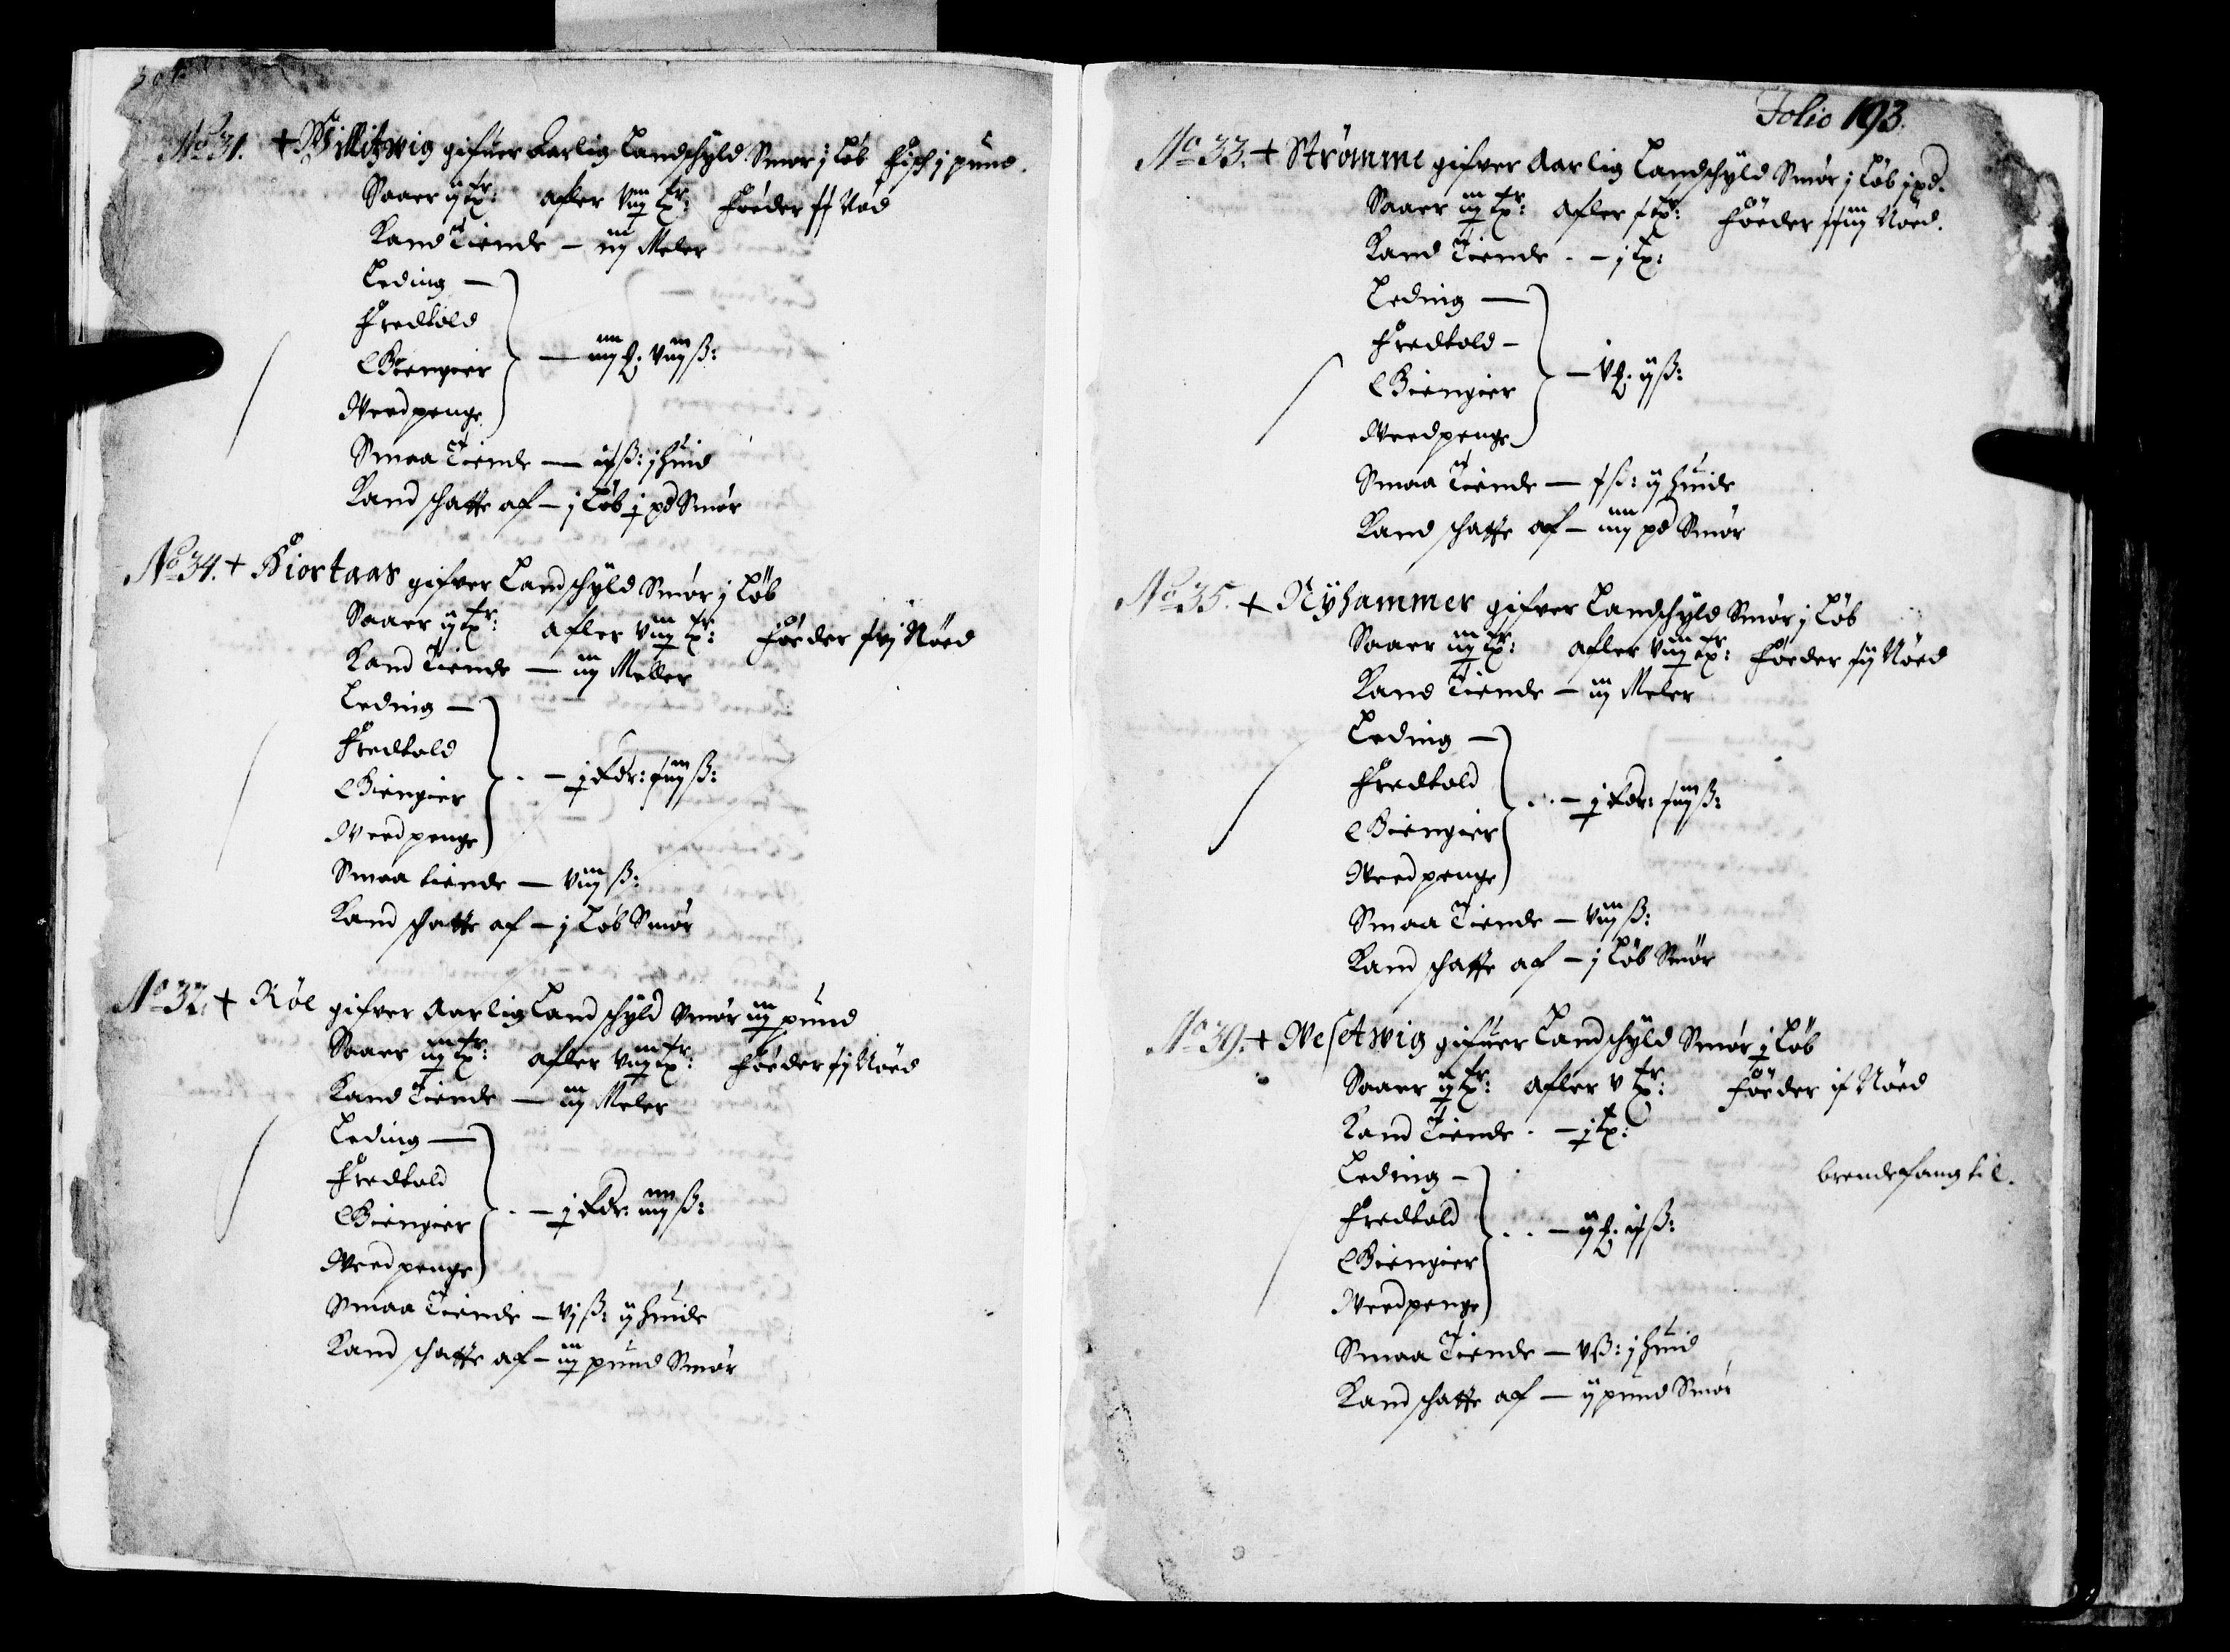 No 31. + Willitzwig gifuer Aarlig Landschyld Smør j Løb fisch j pund.
Saaer ij tr: afler viij tr: føeder xx Nød
Kand Tiende — iij Meler
Leding —
Fredtold
Giengier — iiij f. viij ß:
Weedpenge
Smaa Tiende — ix ß: j huid
Kand schatte af — j Løb j pd Smør
No 34. + Kiortaas gifver Landschyld Smør j Løb
Saaer ij tr: afler viij tr: føeder xvj Nøed
Kand Tiende — iij Meller
Leding —
Fredtold
Giengier — j Rdr: xiij ß:
Weedpenge
Smaa tiende — viij ß:
Kand schatte af — j Løb Smør
No 32. + Røe gifver Aarlig Landschyld Smør iij pund
Saaer iij tr: afler viij tr: føeder xj Nøed
Kand Tiende — iij Meler
Leding —
Fredtold
Giengier — j Rdr: iiij ß:
Weedpenge
Smaa Tiende — vj ß: ij huide
Kand schatte af — iij pund Smør
Folio 193.
No 33. + Strømme gifver Aarlig Landschyld Smør j Løb j pd.
Saaer iij tr: afler x tr: føeder xxiij Nøed.
Kand Tiende — j tr:
Leding —
Fredtold —
Giengier — v f. ij ß:
Weedpenge
Smaa Tiende — x ß: ij huide
Kand schatte af — iiij pd Smør
No 35. + Nÿhammer gifver Landschyld Smør j Løb
Saaer iij tr: afler viij tr: føeder xij Nøed
Kand Tiende — iij Meler
Leding —
Fredtold
Giengier — j Rdr: xiij ß:
Weedpenge
Smaa Tiende — viij ß:
Kand schatte af — j Løb Smør
No 39. + Wesetwig gifuer Landschyld Smør j Løb
Saaer ij tr: afler v tr: føeder ix Nøed
Kand Tiende — j tr:
Leding — brendefang til.
Fredtold
Giengier — ij f. ix ß:
Weedpenge
Smaa Tiende — v ß: j huid
Kand schatte af — ij pund Smør